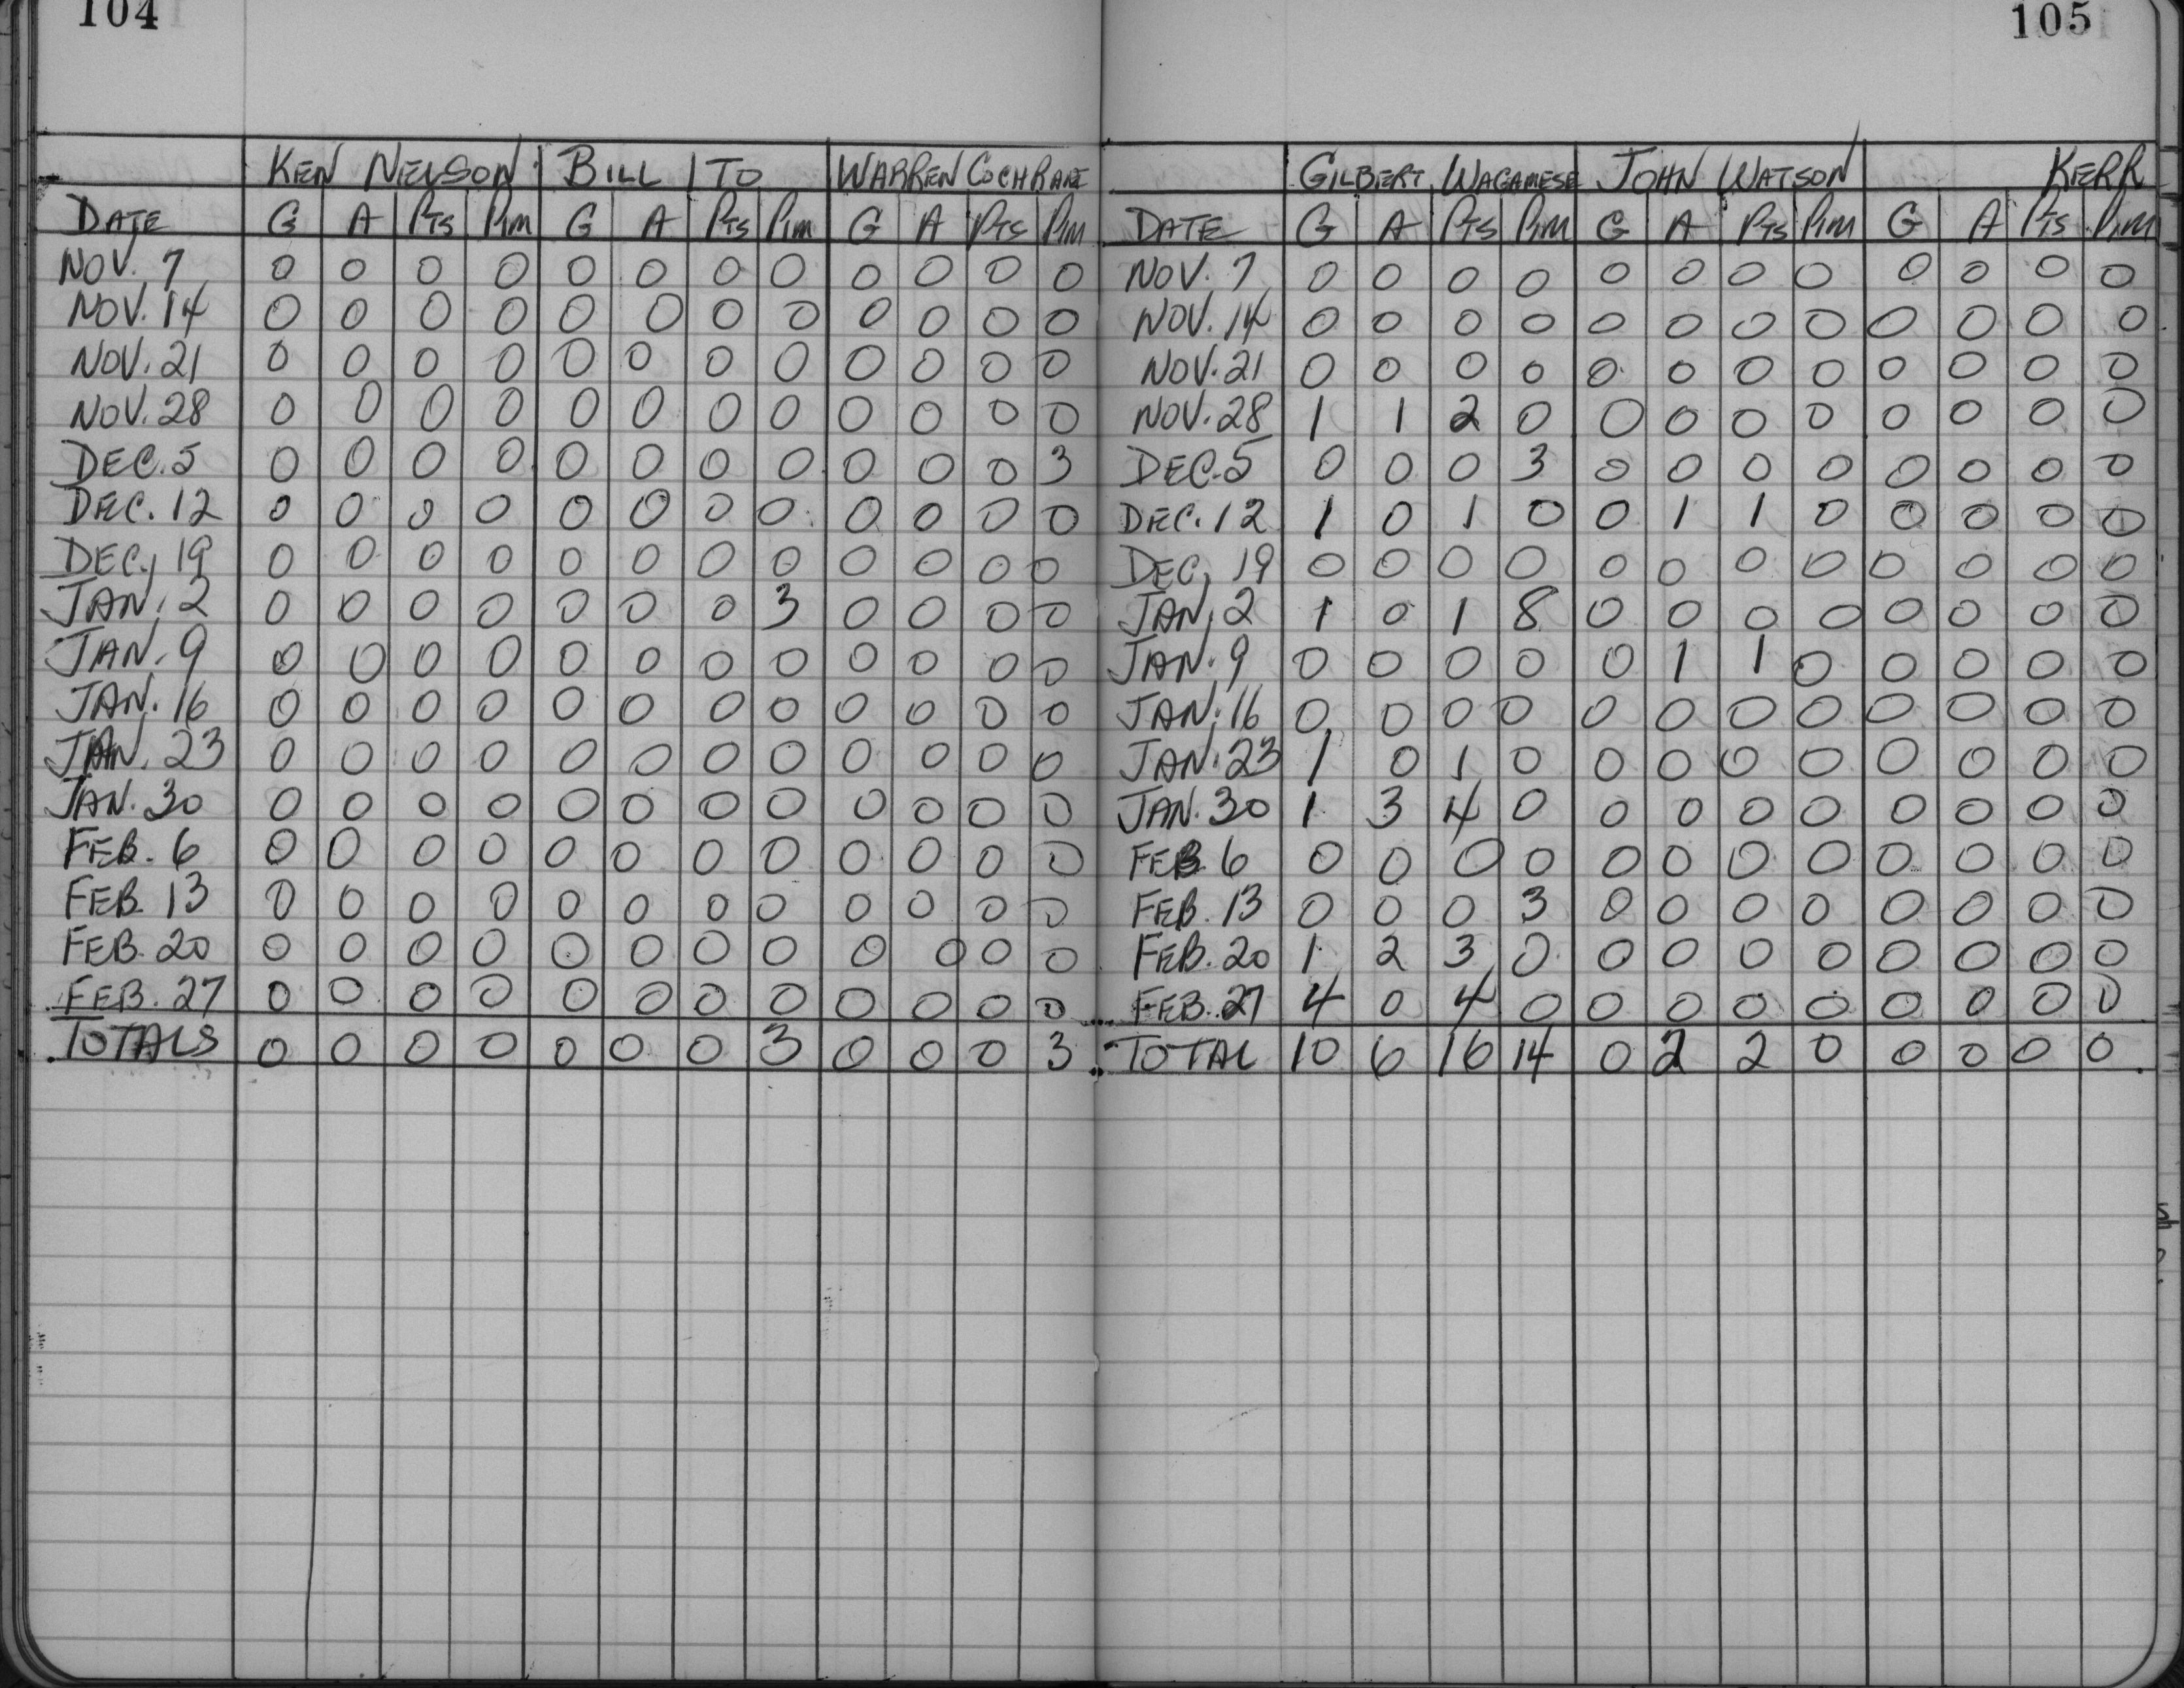 104
KEN NELSON BILL ITO WARREN COCHRANE
DATE G A PTS PIM G A PTS PIM G A PTS PIM
NOV. 7 0 0 0 0 0 0 0 0 0 0 0 0
NOV. 14 0 0 0 0 0 0 0 0 0 0 0 0
NOV. 21 0 0 0 0 0 0 0 0 0 0 0 0
NOV. 28 0 0 0 0 0 0 0 0 0 0 0 0
DEC. 5 0 0 0 0 0 0 0 0 0 0 0 3
DEC. 12 0 0 0 0 0 0 0 0 0 0 0 0
DEC, 19 0 0 0 0 0 0 0 0 0 0 0 0
JAN. 2 0 0 0 0 0 0 0 3 0 0 0 0
JAN. 9 0 0 0 0 0 0 0 0 0 0 0 0
JAN. 16 0 0 0 0 0 0 0 0 0 0 0 0
JAN. 23 0 0 0 0 0 0 0 0 0 0 0 0
JAN. 30 0 0 0 0 0 0 0 0 0 0 0 0
FEB. 6 0 0 0 0 0 0 0 0 0 0 0 0
FEB 13 0 0 0 0 0 0 0 0 0 0 0 0
FEB. 20 0 0 0 0 0 0 0 0 0 0 0 0
FEB. 27 0 0 0 0 0 0 0 0 0 0 0 0
TOTALS 0 0 0 0 0 0 0 3 0 0 0 3
105
GILBERT WAGAMESE JOHN WATSON KERR
DATE G A PTS PIM G A PTS PIM G A PTS PIM
NOV. 7 0 0 0 0 0 0 0 0 0 0 0 0
NOV. 14 0 0 0 0 0 0 0 0 0 0 0 0
NOV. 21 0 0 0 0 0 0 0 0 0 0 0 0
NOV. 28 1 1 2 0 0 0 0 0 0 0 0 0
DEC. 5 0 0 0 3 0 0 0 0 0 0 0 0
DEC. 12 1 0 1 0 0 1 1 0 0 0 0 0
DEC, 19 0 0 0 0 0 0 0 0 0 0 0 0
JAN, 2 1 0 1 8 0 0 0 0 0 0 0 0
JAN. 9 0 0 0 0 0 1 1 0 0 0 0 0
JAN. 16 0 0 0 0 0 0 0 0 0 0 0 0
JAN. 23 1 0 1 0 0 0 0 0 0 0 0 0
JAN. 30 1 3 4 0 0 0 0 0 0 0 0 0
FEB 6 0 0 0 0 0 0 0 0 0 0 0 0
FEB. 13 0 0 0 3 0 0 0 0 0 0 0 0
FEB. 20 1 2 3 0 0 0 0 0 0 0 0 0
FEB. 27 4 0 4 0 0 0 0 0 0 0 0 0
TOTAL 10 6 16 14 0 2 2 0 0 0 0 0